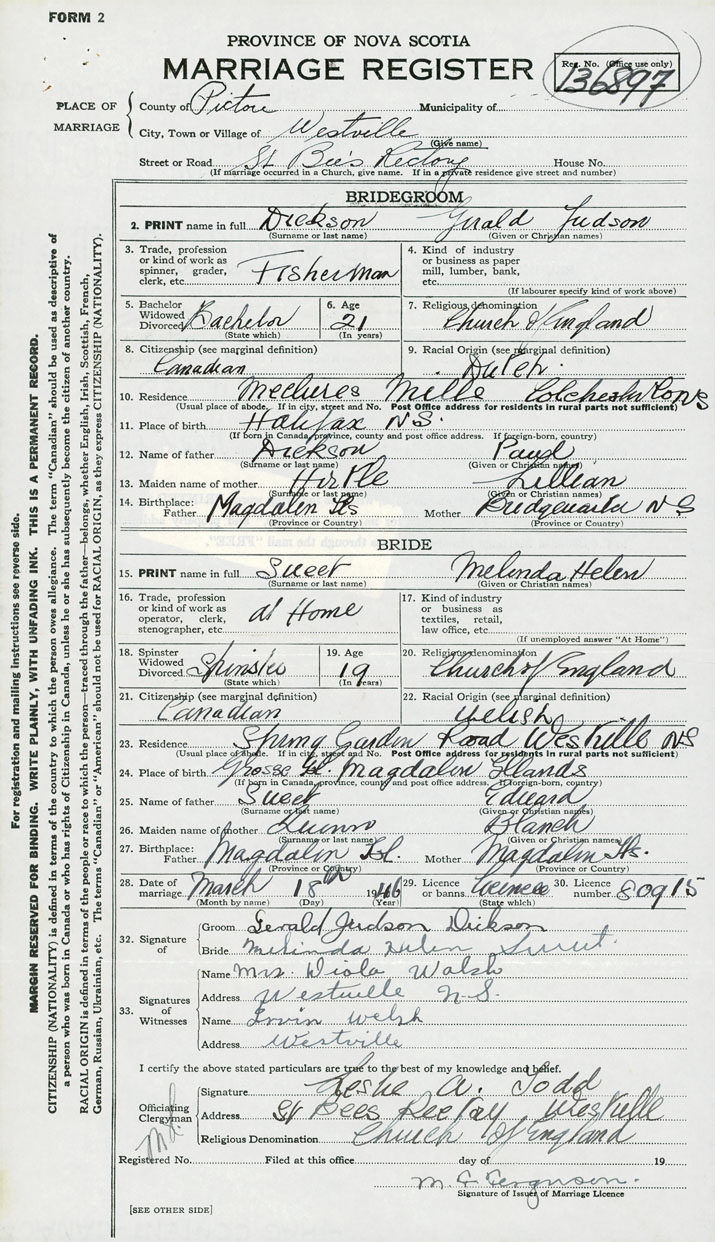 FORM 2
PROVINCE OF NOVA SCOTIA
MARRIAGE REGISTER
Reg. No. (Office use only)
136897
PLACE OF MARRIAGE
County of Pictou Municipality of
City, Town or Village of Westville
(Give name)
Street or Road St Bee's Rectory House No.
(If marriage occurred in a Church, give name. If in a private residence give street and number)
BRIDEGROOM
2. PRINT name in full Dickson Gerald Judson
(Surname or last name) (Given or Christian names)
3. Trade, profession or kind of work as spinner, grader, clerk, etc. Fisherman
4. Kind of industry or business as paper mill, lumber, bank, etc.
(If labourer specify kind of work above)
5. Bachelor Widowed Divorced Bachelor (State which)
6. Age 21 (In years)
7. Religious denomination Church of England
8. Citizenship (see marginal definition) Canadian
9. Racial Origin (see marginal definition) Dutch.
10. Residence McClures Mills Colchester Co NS
(Usual place of abode. If in city, street and No. Post Office address for residents in rural parts not sufficient)
11. Place of birth Halifax N.S.
(If born in Canada, province, county and post office address. If foreign-born, country)
12. Name of father Dickson Paul
(Surname or last name) (Given or Christian names)
13. Maiden name of mother Hirtle Lillian
(Surname or last name) (Given or Christian names)
14. Birthplace: Father Magdalin Is Mother Bridgewater N S
(Province or Country) (Province or Country)
BRIDE
15. PRINT name in full Sweet Melinda Helen
(Surname or last name) (Given or Christian names)
16. Trade, profession or kind of work as operator, clerk, stenographer, etc. at Home
17. Kind of industry or business as textiles, retail, law office, etc.
(If unemployed answer "At Home")
18. Spinster Widowed Divorced Spinster (State which)
19. Age 19 (In years)
20. Religious denomination Church of England
21. Citizenship (see marginal definition) Canadian
22. Racial Origin (see marginal definition) Welsh
23. Residence Spring Garden Road Westville NS
(Usual place of abode. If in city, street and No. Post Office address for residents in rural parts not sufficient)
24. Place of birth Grosse Is. Magdalin Islands
(If born in Canada, province, county and post office address. If foreign-born, country)
25. Name of father Sweet Edward
(Surname or last name) (Given or Christian names)
26. Maiden name of mother Quinn Blanch
(Surname or last name) (Given or Christian names)
27. Birthplace: Father Magdalin Isl. Mother Magdalin Is.
(Province or Country) (Province or Country)
28. Date of marriage March 18th 1946
(Month by name) (Day) (Year)
29. Licence or banns licence (State which)
30. Licence number 80915
32. Signature of
Groom Gerald Judson Dickson
Bride Melinda Helen Sweet
33. Signatures of Witnesses
Name Mrs. Viola Walsh
Address Westville N.S.
Name Irvin Welsh
Address Westville
I certify the above stated particulars are true to the best of my knowledge and belief.
Officiating Clergyman
Signature Leslie A. Todd
Address St Bees Rectory Westville
Religious Denomination Church of England
Registered No. Filed at this office day of 19
Signature of Issuer of Marriage Licence
[SEE OTHER SIDE]
For registration and mailing instructions see reverse side.
MARGIN RESERVED FOR BINDING. WRITE PLAINLY, WITH UNFADING INK. THIS IS A PERMANENT RECORD.
CITIZENSHIP (NATIONALITY) is defined in terms of the country to which the person owes allegiance. The term "Canadian" should be used as descriptive of
a person who was born in Canada or who has rights of Citizenship in Canada, unless he or she has subsequently become the citizen of another country.
RACIAL ORIGIN is defined in terms of the people or race to which the person—traced through the father—belongs, whether English, Irish, Scottish, French,
German, Russian, Ukrainian, etc. The terms "Canadian" or "American" should not be used for RACIAL ORIGIN, as they express CITIZENSHIP (NATIONALITY).